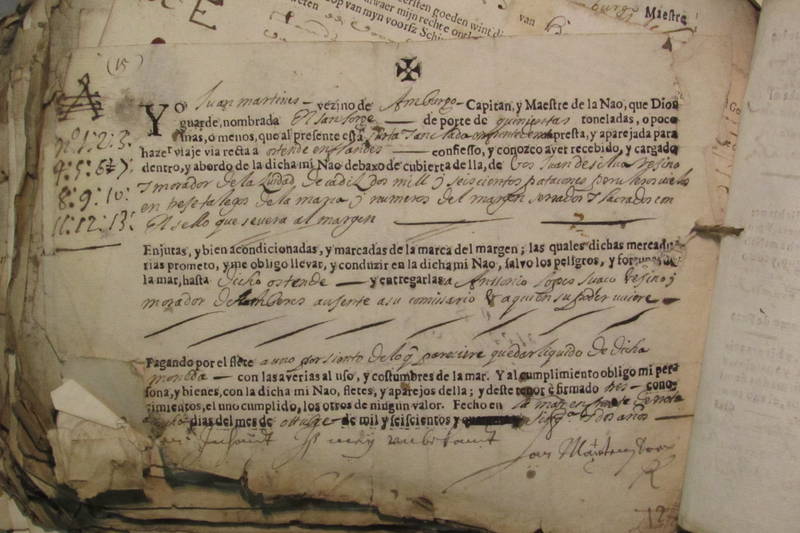 eersten goeden wint di
waer mijn rechte onth
oop van myn voorsz Schi
weten
van
Maestre
(15)
Yo Juan martines vezino de Amburgo Capitan, y Maestre de la Nao, que Dios
guarde, nombrada El san Jorge de porte de quinientas toneladas, o poco
mas, o menos, que al presente está surta y anclada presta, y aparejada para
hazer viaje via recta a ostende en flandes confiesso, y conozco aver recebido, y cargado
dentro, y abordo de la dicha mi Nao debaxo de cubierta della, de Vos Juan de silva Vesino
y morador de la Ciudad de cadiz dos mill y seiscientos patacones peruleros
en pese talegos de la marca y numeros del margen serrados y lacrados con
El sello que se vera al margen
nº 1:2:3:
4:5:6:7:
8:9:10:
11:12:13:
Enjutas, y bien acondicionadas, y marcadas de la marca del margen; las quales dichas mercadu-
rias prometo, y me obligo llevar, y conduzir en la dicha mi Nao, salvo los peligros, y fortunas de
la mar, hasta dicho ostende y entregarlas a Antonio lopes suaço Vesino y
morador de Amberes ausente a su comisario o a quien su poder uviere
Pagando por el flete a uno por siento de lo q pareciere quedar liquido de dicha
moneda con las averias al uso, y costumbres de la mar. Y al cumplimiento obligo mi per-
sona, y bienes, con la dicha mi Nao, fletes, y aparejos della; y deste tenor è firmado tres cono-
cimientos, el uno cumplido, los otros de ningun valor. Fecho en la mar
dias del mes de ottubre de mil y seiscientos y y dos años